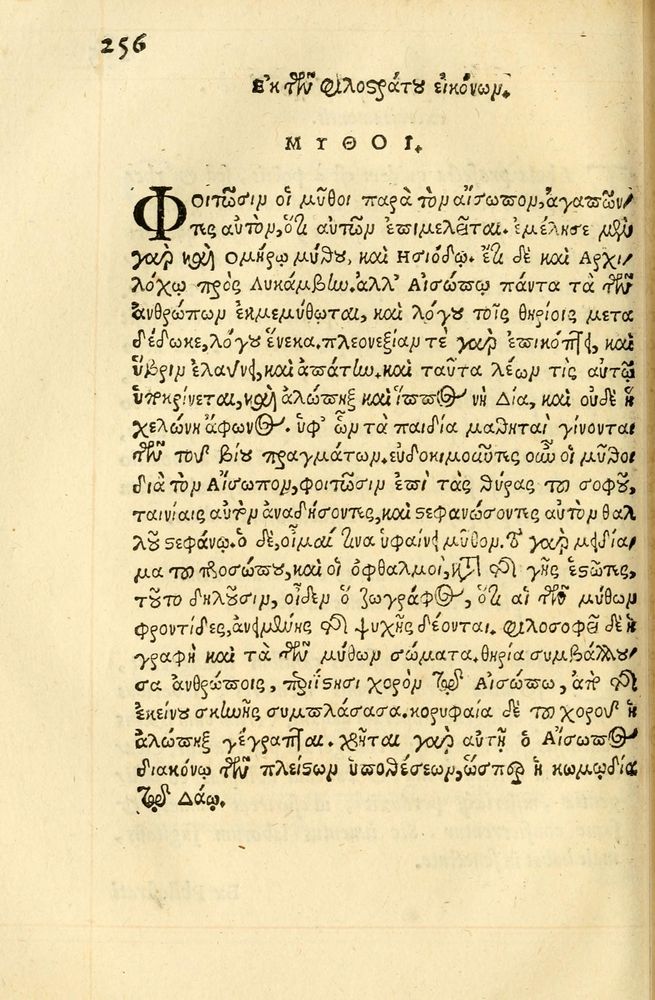 256
Ἐκ τῶν Φιλοστράτου εἰκόνων.
ΜΥΘΟΙ.
Φοιτῶσιν οἱ μῦθοι παρὰ τὸν αἴσωπον, ἀγαπῶν/
τες αὐτὸν, ὅτι αὐτῶν ἐπιμελεῖται. ἐμέλησε μὲν
γὰρ καὶ Ὁμήρῳ μύθου, καὶ Ἡσιόδῳ. ἔτι δὲ καὶ Ἀρχι/
λόχῳ πρὸς Λυκάμβην. ἀλλ' Αἰσώπῳ πάντα τὰ τῶν
ἀνθρώπων ἐκμεμύθωται, καὶ λόγου τοῖς θηρίοις μετα
δέδωκε, λόγου ἕνεκα. πλεονεξίαν τὲ γὰρ ἐπικόπτει, καὶ
ὕβριν ἐλαύνει, καὶ ἀπάτην. καὶ ταῦτα λέων τὶς αὐτῷ
ὑποκρίνεται, καὶ ἀλώπηξ καὶ ἵππος νὴ Δία, καὶ οὐδὲ ἡ
χελώνη ἄφωνος. ὑφ' ὧν τὰ παιδία μαθηταὶ γίνονται
τῶν τοῦ βίου πραγμάτων. εὐδοκιμοῦντες οὖν οἱ μῦθοι
διὰ τὸν Αἴσωπον, φοιτῶσιν ἐπὶ τὰς θύρας τοῦ σοφοῦ,
ταινίαις αὐτὸν ἀναδήσοντες, καὶ στεφανώσοντες αὐτὸν θαλ
λοῦ στεφάνῳ. ὁ δὲ, οἶμαί τινα ὑφαίνει μῦθον. τὸ γὰρ μειδία/
μα τοῦ προσώπου, καὶ οἱ ὀφθαλμοὶ, κατὰ τῆς γῆς ἑστῶτες,
τοῦτο δηλοῦσιν, οἶδεν ὁ ζωγράφος, ὅτι αἱ τῶν μύθων
φροντίδες, ἀνειμένης τῆς ψυχῆς δέονται. φιλοσοφεῖ δὲ ἡ
γραφὴ καὶ τὰ τῶν μύθων σώματα. θηρία συμβάλλου/
σα ἀνθρώποις, περιΐστησι χορὸν τῷ Αἰσώπῳ, ἀπὸ τῆς
ἐκείνου σκηνῆς συμπλάσασα. κορυφαία δὲ τοῦ χοροῦ ἡ
ἀλώπηξ γέγραπται. χρῆται γὰρ αὐτῇ ὁ Αἴσωπος
διακόνῳ τῶν πλείστων ὑποθέσεων, ὥσπερ ἡ κωμῳδία
τῷ Δάῳ.